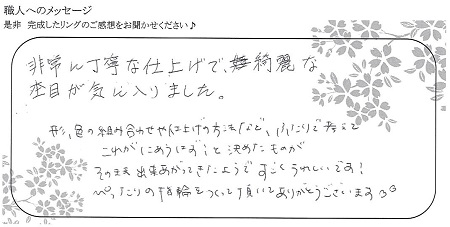 職人へのメッセージ
是非 完成したリングのご感想をお聞かせください♪
非常に丁寧な仕上げで、綺麗な
杢目が気に入りました。
形、色の組み合わせや仕上げの方法など、ふたりで考えて
これがにあうはず!と決めたものが
そのまま出来あがってきたようですごくうれしいです!
ぴったりの指輪をつくって頂いてありがとうございます